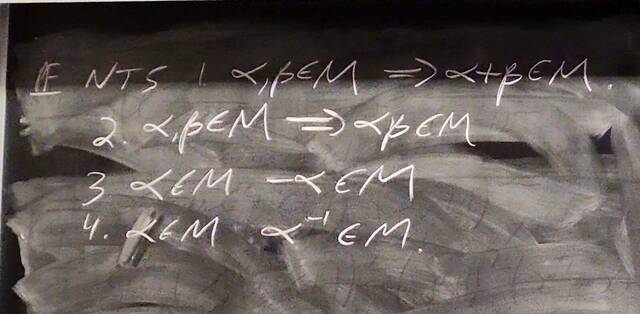 Pf NTS 1. α,β∈M ⇒ α+β∈M.
2. α,β∈M ⇒ αβ∈M
3 α∈M -α∈M
4. α∈M α⁻¹∈M.